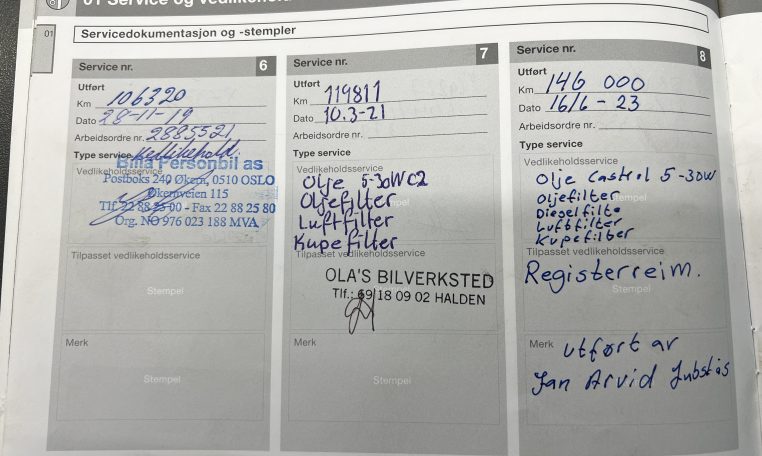 01 Service og vedlikehold
01
Servicedokumentasjon og -stempler
Service nr. 6
Utført
Km 106320
Dato 28-11-19
Arbeidsordre nr. 2885521
Type service Vedlikehold.
Vedlikeholdsservice
Bilia Personbil as
Postboks 240 Økern, 0510 OSLO
Økernveien 115
Tlf. 22 88 25 00 - Fax 22 88 25 80
Org. NO 976 023 188 MVA
Tilpasset vedlikeholdsservice
Stempel
Merk
Stempel
Service nr. 7
Utført
Km 119811
Dato 10.3-21
Arbeidsordre nr.
Type service
Vedlikeholdsservice
Olje 5-30W C2
Oljefilter
Stempel
Luftfilter
Kupefilter
Tilpasset vedlikeholdsservice
OLA'S BILVERKSTED
Tlf.: 69 18 09 02 HALDEN
Merk
Stempel
Service nr. 8
Utført
Km 146 000
Dato 16/6 - 23
Arbeidsordre nr.
Type service
Vedlikeholdsservice
Olje Castrol 5-30W
Oljefilter
Stempel
Dieselfilte
Luftfilter
Kupefilter
Tilpasset vedlikeholdsservice
Registerreim.
Stempel
Merk Utført av
Jan Arvid
Stempel